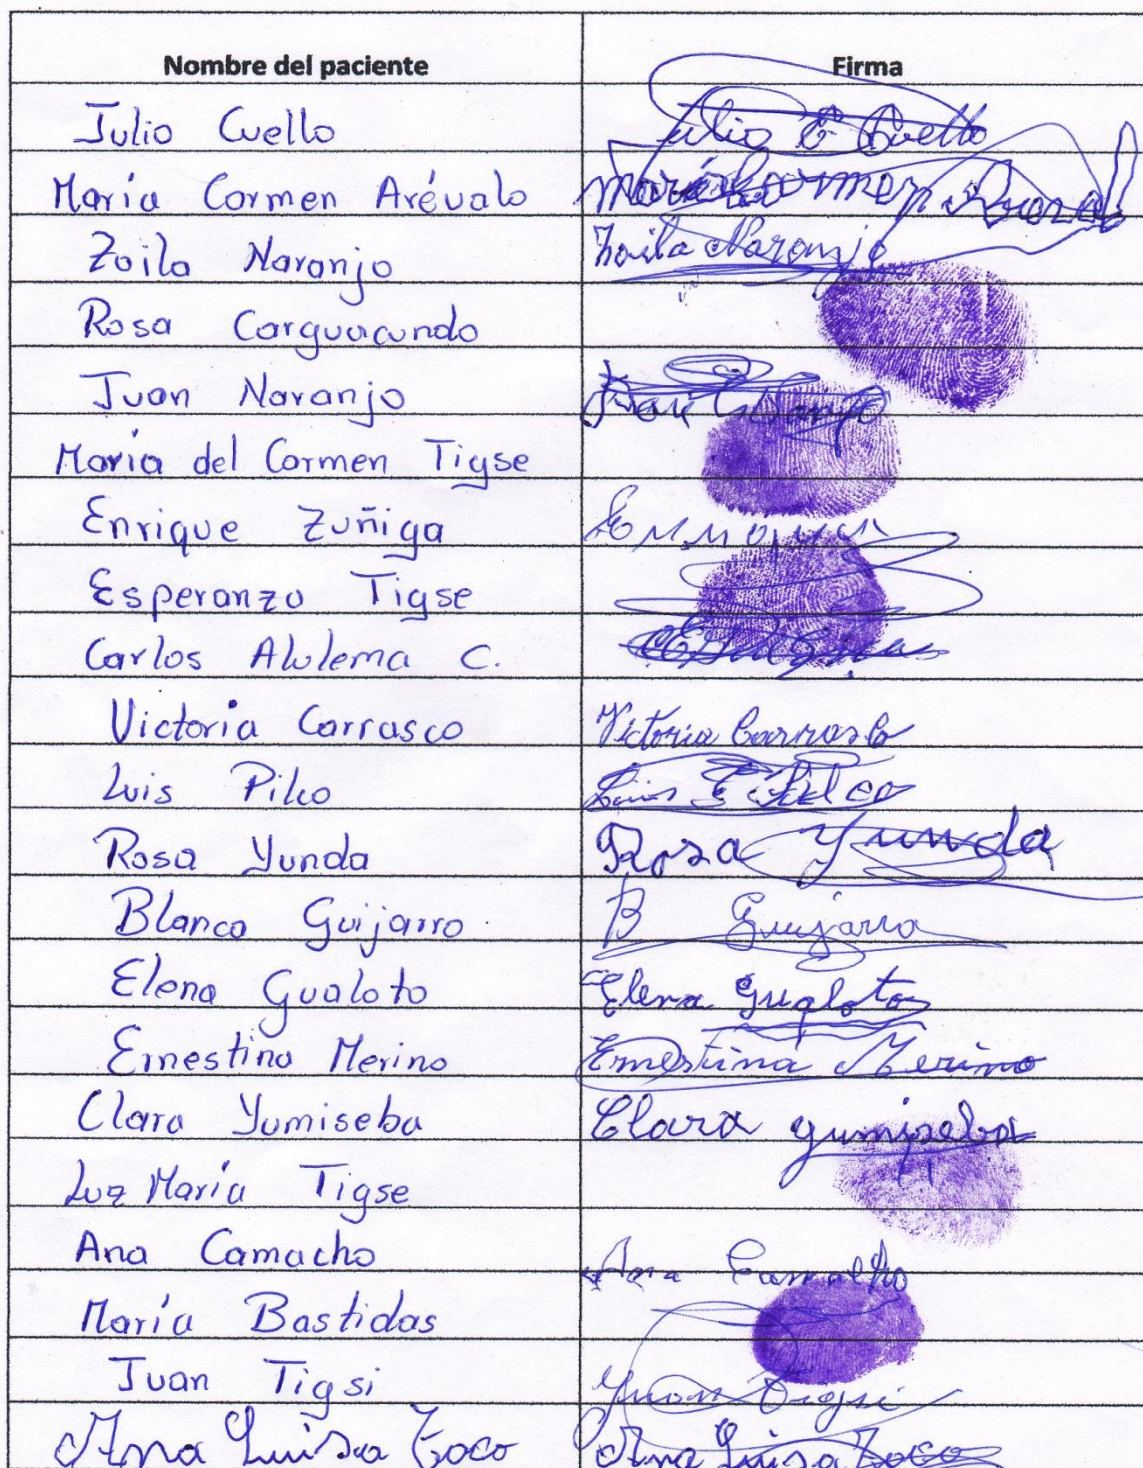 Nombre del paciente Firma
Julio Cuello Julio E Cuello
María Carmen Arévalo María Carmen
Zoila Naranjo Zoila Naranjo
Rosa Carguacundo
Juan Naranjo
María del Carmen Tigse
Enrique Zuñiga
Esperanza Tigse
Carlos Alulema C.
Victoria Carrasco Victoria Carrasco
Luis Pilco Luis Pilco
Rosa Yunda Rosa Yunda
Blanca Guijarro B Guijarro
Elena Gualoto Elena Gualoto
Ernestina Merino Ernestina Merino
Clara Yumiseba Clara Yumiseba
Luz María Tigse
Ana Camacho Ana Camacho
María Bastidas
Juan Tigsi Juan Tigsi
Ana Luisa Toco Ana Luisa Toco